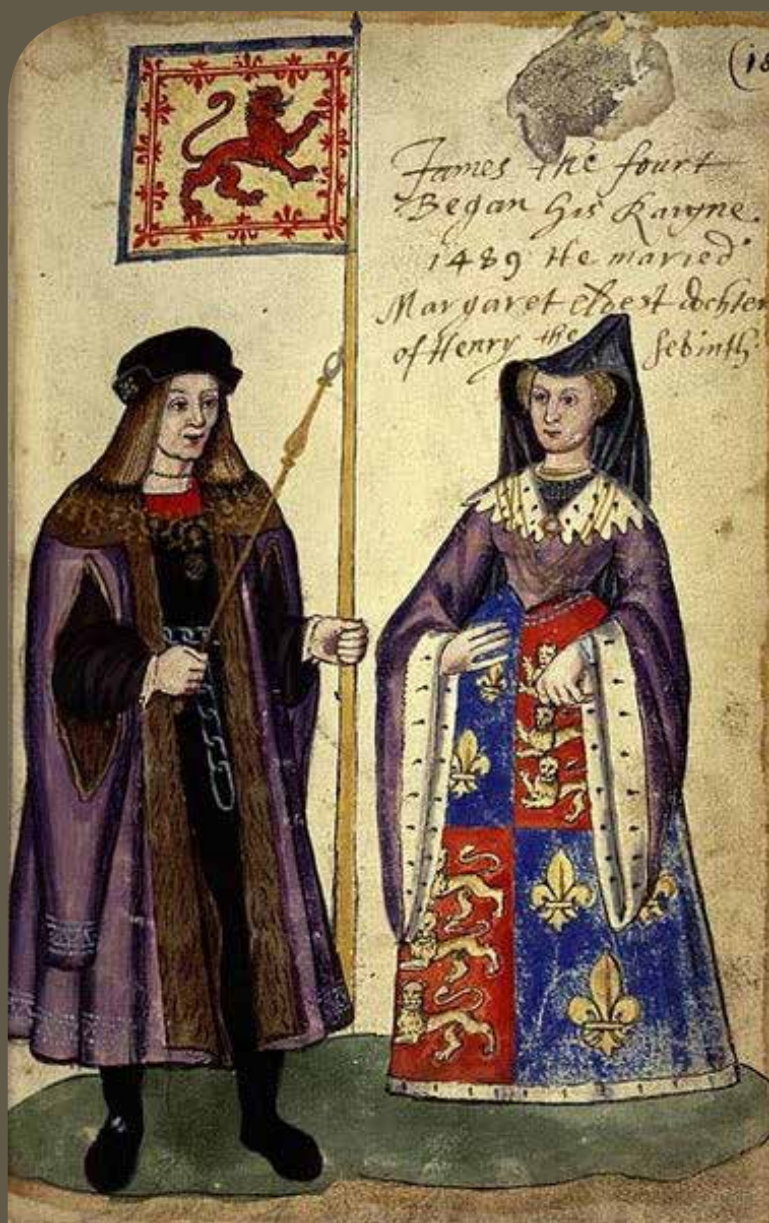 (18
James the fourt
Began his Raigne.
1489 He maried
Margaret eldest dochter
of Henry the sebinth.